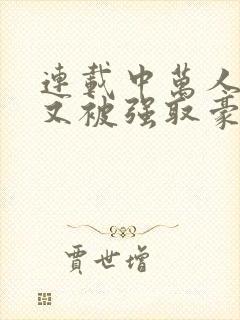 連載中萬人
又被强取豪
賈世增